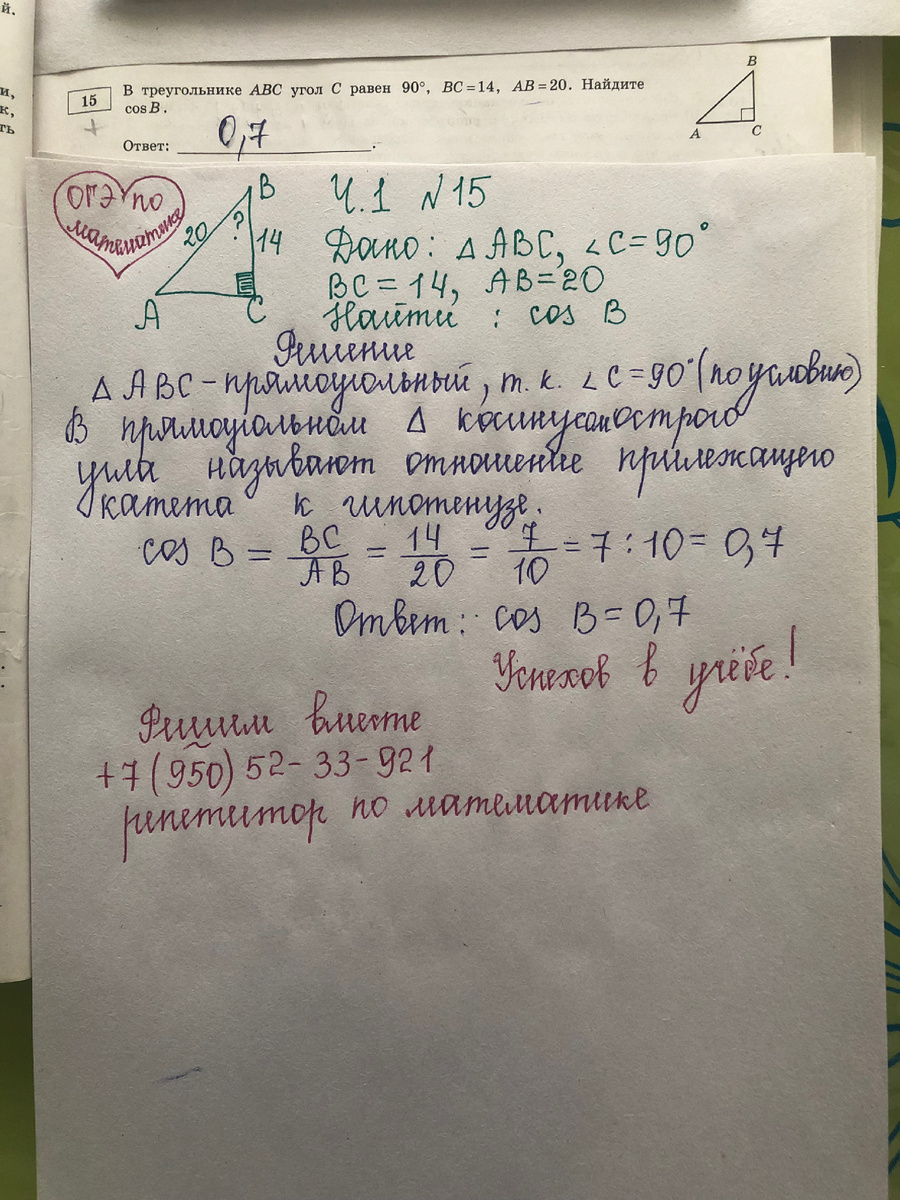 й.
и,
к,
ть
15
В треугольнике ABC угол C равен 90°, BC = 14, AB = 20. Найдите
cos B.
Ответ: 0,7.
B
A
C
ОГЭ по
математике
B
20
?
14
A
C
Ч.1 №15
Дано: △ABC, ∠C=90°
BC=14, AB=20
Найти : cos B
Решение
△ABC – прямоугольный, т. к. ∠C=90° (по условию)
В прямоугольном △ косинусом острого
угла называют отношение прилежащего
катета к гипотенузе.
cos B = BC/AB = 14/20 = 7/10 = 7 : 10 = 0,7
Ответ: cos B = 0,7
Успехов в учёбе!
Решим вместе
+7 (950) 52-33-921
репетитор по математике